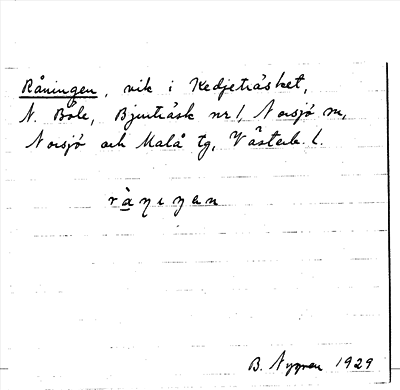 Råningen, vik i Kedjeträsket,
N. Bole, Bjurträsk nr 1, Norsjö sn,
Norsjö och Malå tg, Västerb. l.
B. Nygren 1929